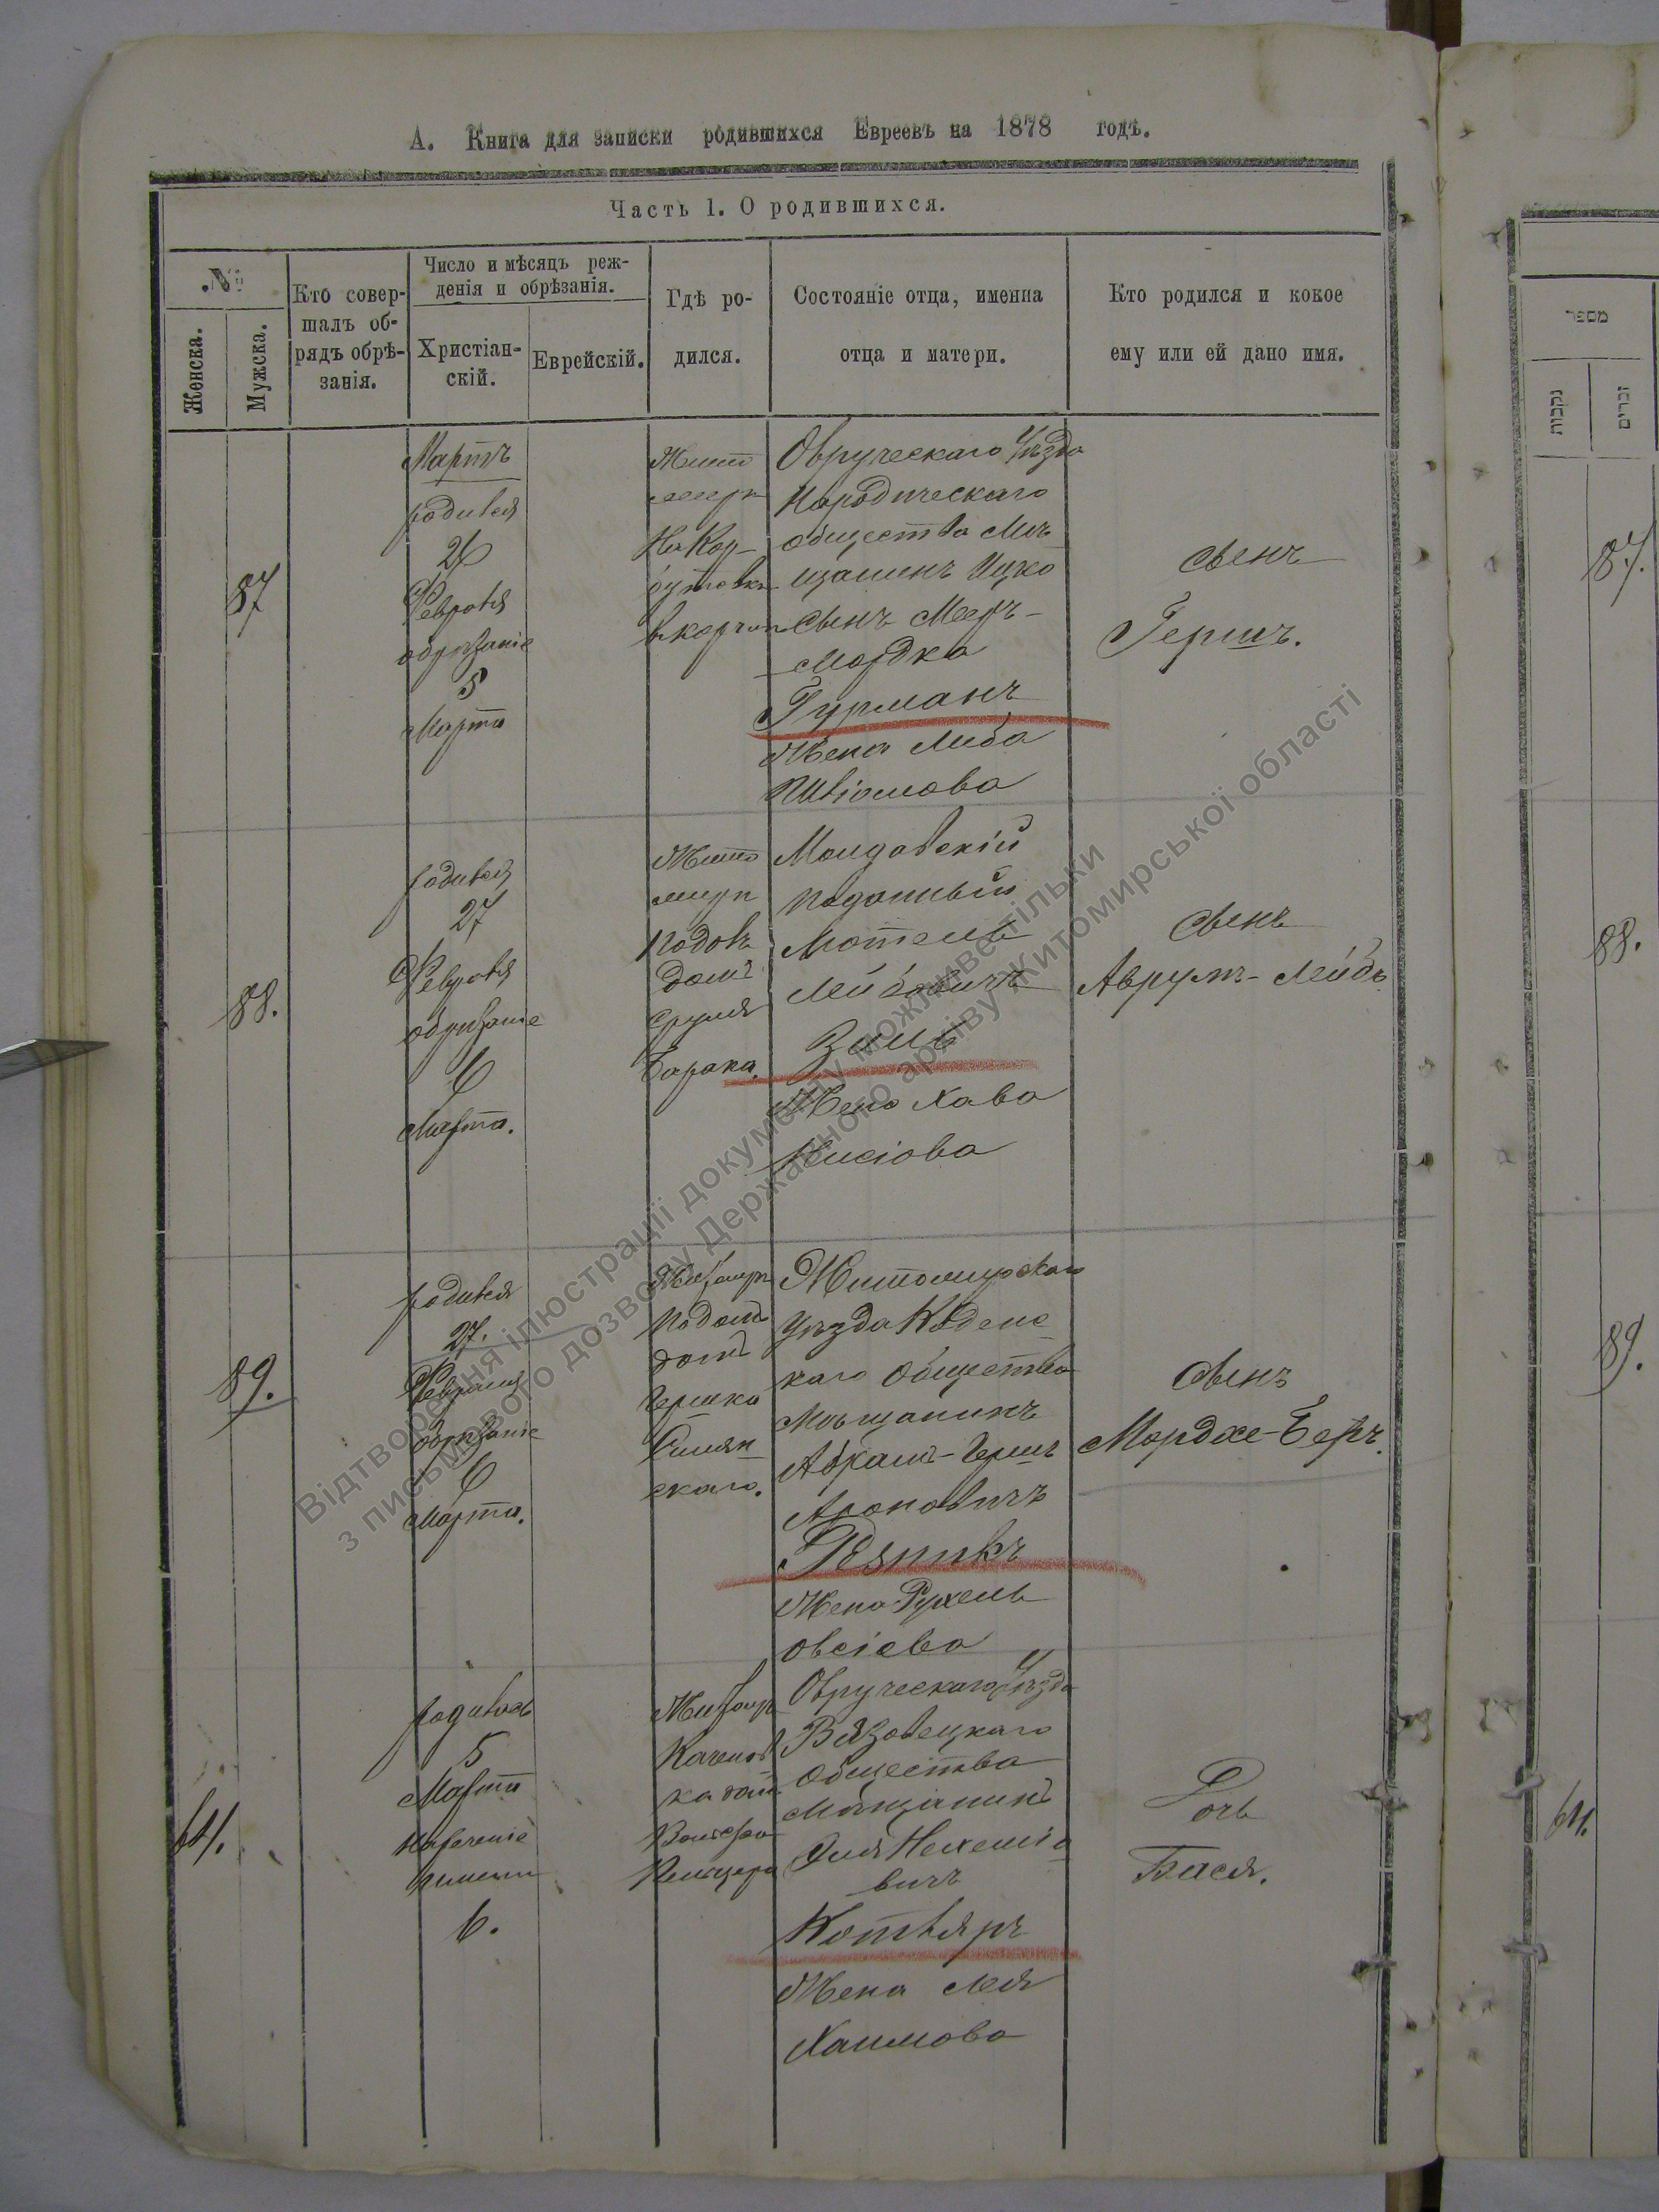 А. Книга для записки родившихся Евреевъ на 1878 годъ.
Часть 1. О родившихся.
№
Женска.
Мужска.
Кто совер-
шалъ об-
рядъ обрѣ-
занія.
Число и мѣсяцъ реж-
денія и обрѣзанія.
Христіан-
скій.
Еврейскій.
Гдѣ ро-
дился.
Состояніе отца, именна
отца и матери.
Кто родился и кокое
ему или ей дано имя.
87
Мартъ
родився
26
Февраля
обрѣзаніе
5
Марта
Жито
миръ
На
Овручскаго Уѣзда
Народическаго
общества Мѣ
щанинъ Ицко
сынъ Мееръ-
Мордка
Гурманъ
Жена Либа
сынъ
Гершъ.
88.
родився
27
Февраля
обрѣзаніе
6
Марта.
Жито
миръ
домъ
Сруля
Барака.
Молдавскій
подданый
Мотель
Лейбовичъ
Зиль
Жена Хава
сынъ
Аврумъ-Лейбъ
89.
родився
27.
Февраля
обрѣзаніе
6
Марта.
Житомиръ
домъ
Гершка
скаго.
Житомирскаго
Уѣзда Коденс
каго Общества
Мѣщанинъ
Абрамъ-Гершъ
Ароновичъ
Рѣзникъ
Жена Рухель
Овсіева
сынъ
Мордхе-Беръ.
64.
родилась
5
Марта
Наречение
имени
6.
Житомиръ
Овручскаго Уѣзда
Вязовецкаго
Общества
Мѣщанинъ
Нехеміо
вичъ
Котляръ
Жена Лея
Хаимова
Дочь
Бася.
מספר
נקבות
זכרים
87.
88.
89.
64.
Відтворення ілюстрації документу можливе тільки
з письмового дозволу Державного архіву Житомирської області